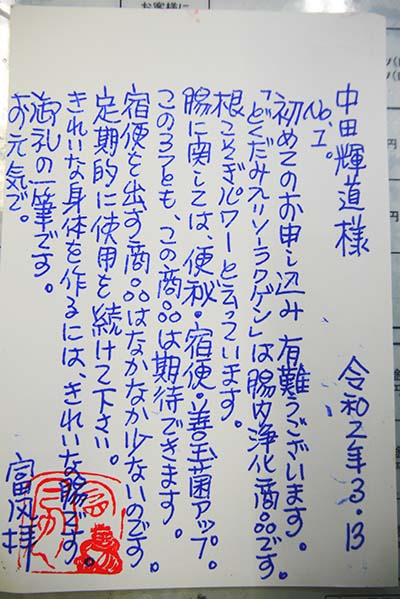 お客様に
中田輝道様
令和2年3.13
No.1。
初めてのお申し込み 有難うございます。
「どくだみ入りソーラクゲン」は腸内浄化商品です。
根こそぎパワーと云っています。
腸に関しては、便秘・宿便・善玉菌アップ。
この3つとも、この商品は期待できます。
宿便を出す商品はなかなか少ないのです。
定期的に使用を続けて下さい。
きれいな身体を作るには、きれいな腸です。
御礼の一筆です。
お元気で。
拝